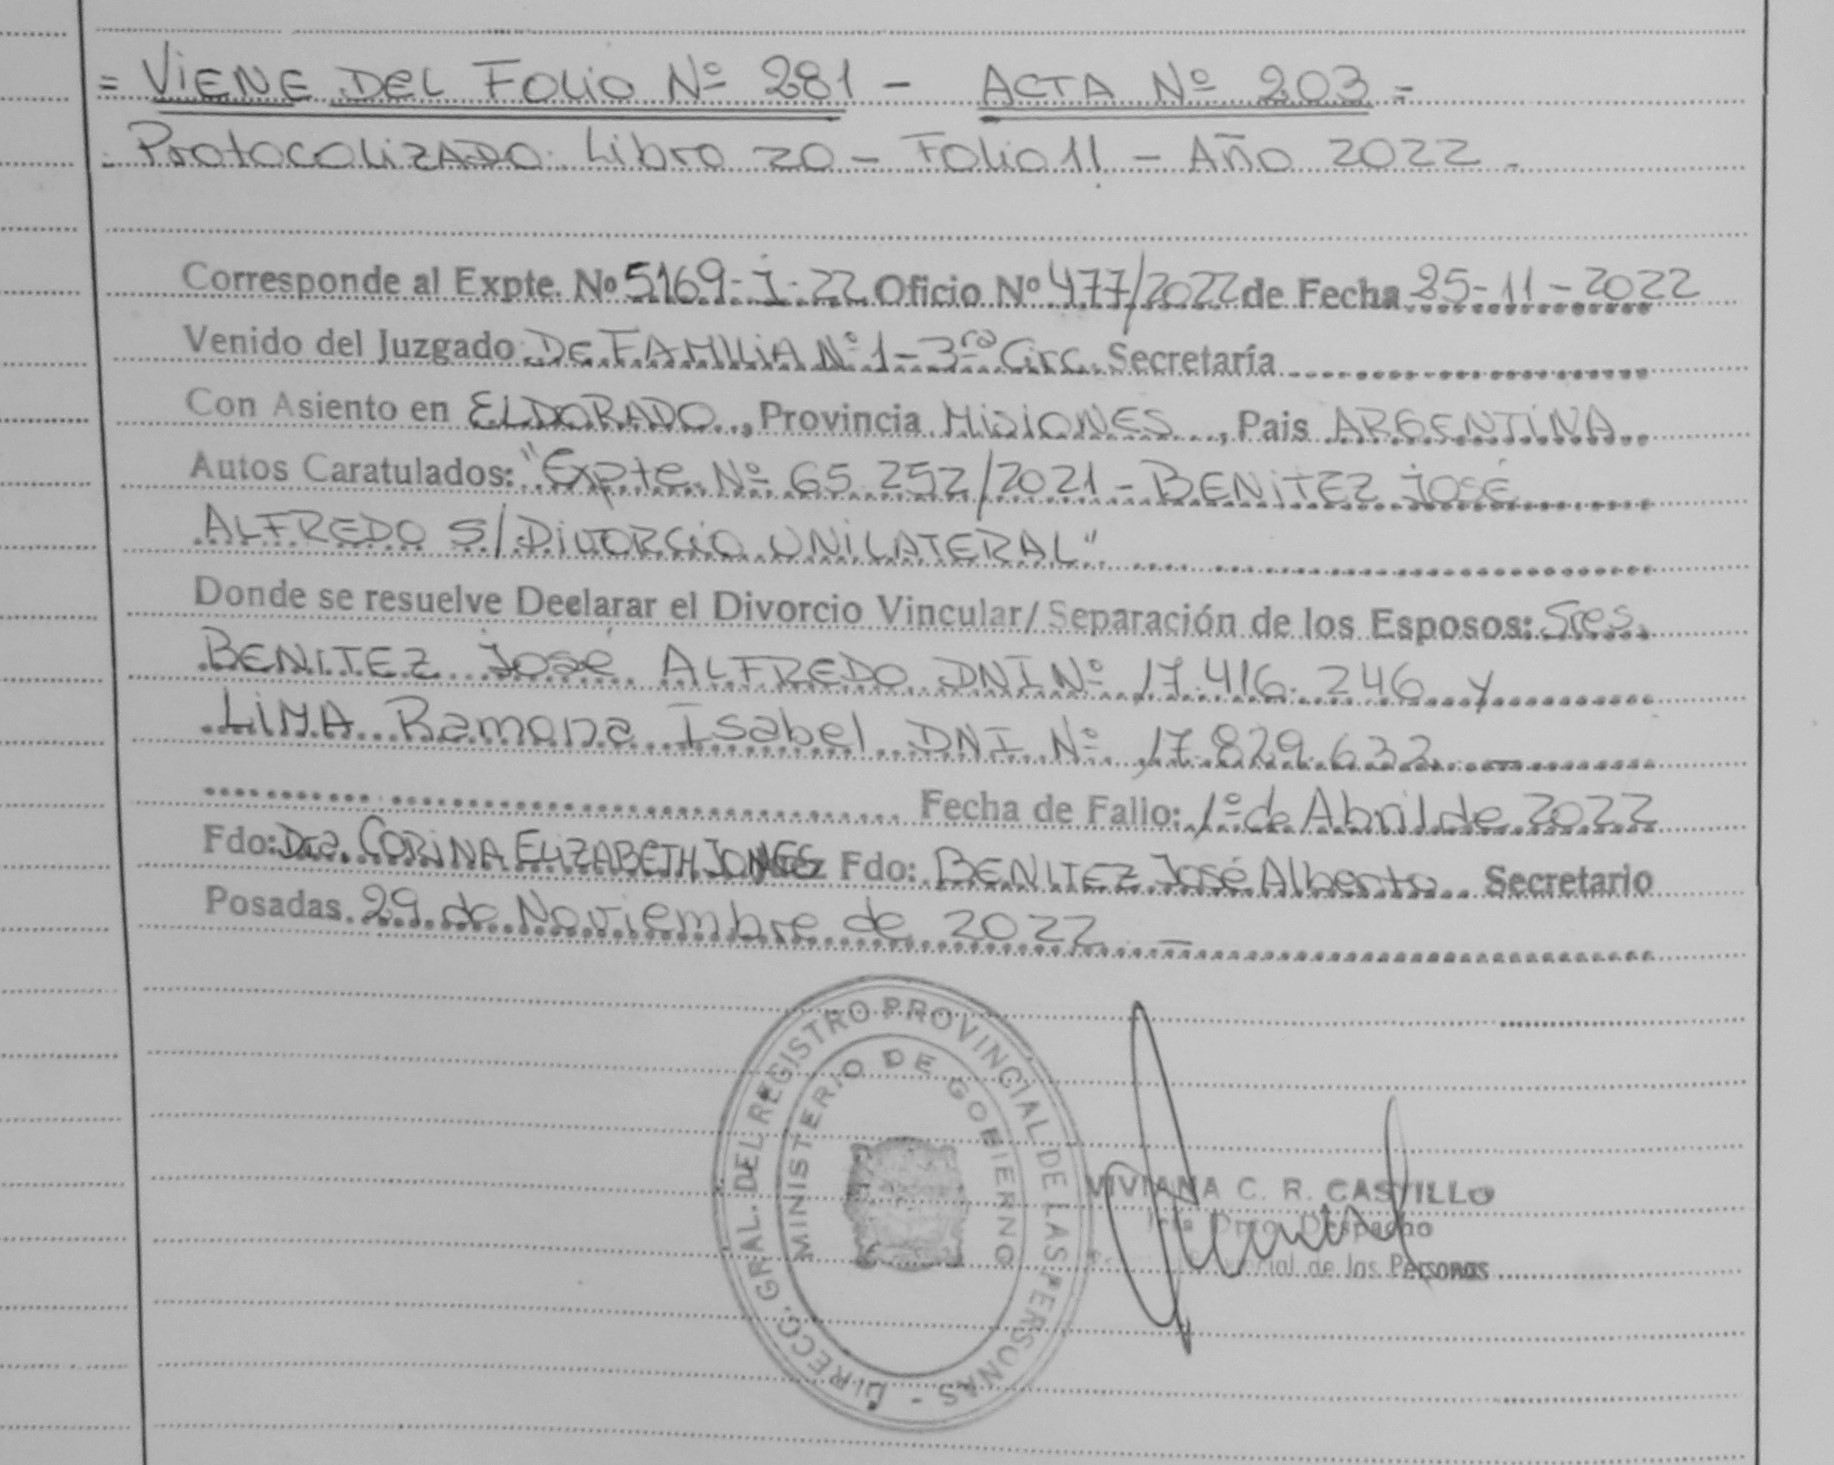 = VIENE DEL FOLIO Nº 281 - ACTA Nº 203 =
- PROTOCOLIZADO: Libro 20 - Folio 11 - Año 2022 -
Corresponde al Expte. Nº 5169-I-22 Oficio Nº 477/2022 de Fecha 25-11-2022
Venido del Juzgado DE FAMILIA Nº 1 - 3ra Circ. Secretaría
Con Asiento en ELDORADO, Provincia MISIONES, Pais ARGENTINA
Autos Caratulados: "Expte. Nº 65.252/2021 - BENITEZ JOSÉ
ALFREDO S/DIVORCIO UNILATERAL"
Donde se resuelve Declarar el Divorcio Vincular/Separación de los Esposos: Sres.
BENITEZ José ALFREDO DNI Nº 17.416.246 y
LIMA Ramona Isabel DNI Nº 17.829.632 -
Fecha de Fallo: 1º de Abril de 2022
Fdo: Dra. CORINA ELIZABETH JONES Fdo: BENITEZ José Alberto Secretario
Posadas 29 de Noviembre de 2022 -
DIRECC. GRAL. DEL REGISTRO PROVINCIAL DE LAS PERSONAS -
MINISTERIO DE GOBIERNO
VIVIANA C. R. CASTILLO
Dpto. Despacho
de las Personas